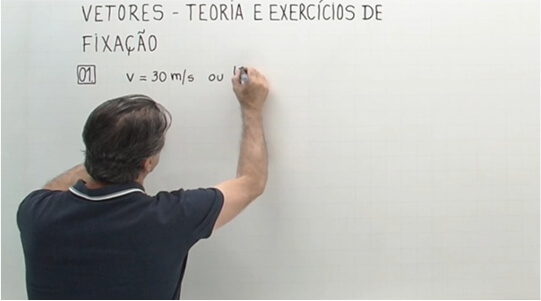 VETORES - TEORIA E EXERCÍCIOS DE
FIXAÇÃO
01. v = 30 m/s ou